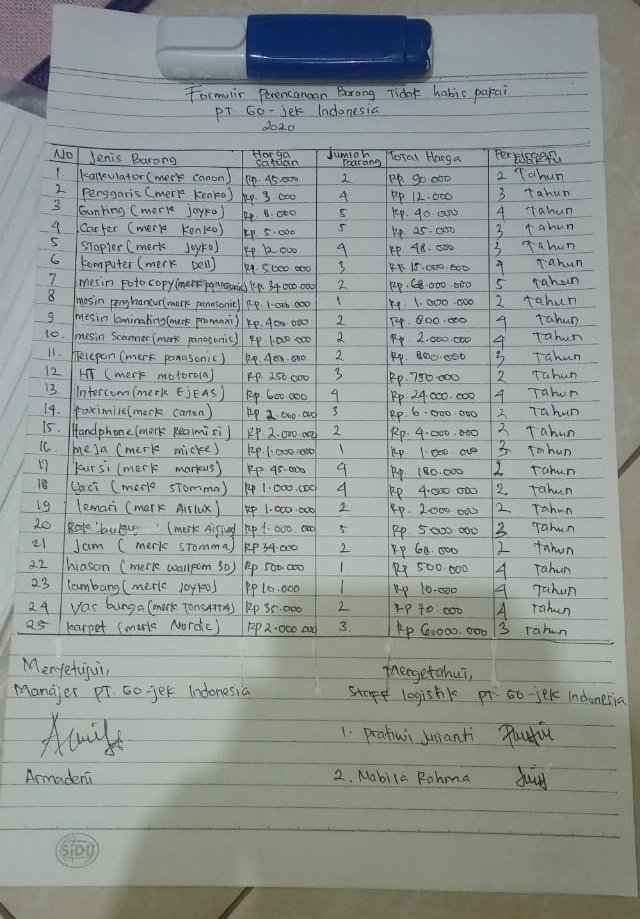 Formulir Perencanaan Barang Tidak habis pakai
PT. Go-jek Indonesia
2020
No Jenis Barang Harga Satuan Jumlah Barang Total Harga Perkiraan Waktu
1 Kalkulator (merk canon) Rp. 45.000 2 Rp. 90.000 2 Tahun
2 Penggaris (merk Kenko) Rp. 3.000 4 Rp. 12.000 3 Tahun
3 Gunting (merk joyko) Rp. 8.000 5 Rp. 40.000 4 Tahun
4 Carter (merk Kenko) Rp. 5.000 5 Rp. 25.000 3 Tahun
5 Stapler (merk joyko) Rp. 12.000 4 Rp. 48.000 3 Tahun
6 Komputer (merk Dell) Rp. 5.000.000 3 Rp 15.000.000 4 Tahun
7 mesin Fotocopy (merk panasonic) Rp. 34.000.000 2 Rp. 68.000.000 5 Tahun
8 mesin penghancur (merk panasonic) Rp. 1.000.000 1 Rp. 1.000.000 2 Tahun
9 mesin laminating (merk promaxi) Rp. 400.000 2 Rp. 800.000 4 Tahun
10. mesin Scanner (merk panasonic) Rp 1.000.000 2 Rp. 2.000.000 4 Tahun
11. Telepon (merk panasonic) Rp. 400.000 2 Rp. 800.000 3 Tahun
12 HT (merk motorola) Rp. 250.000 3 Rp. 750.000 2 Tahun
13. Intercom (merk EJEAS) Rp. 600.000 4 Rp. 24.000.000 4 Tahun
14. Faximile (merk canon) Rp 2.000.000 3 Rp. 6.000.000 2 Tahun
15. Handphone (merk Realmi 5i) Rp. 2.000.000 2 Rp. 4.000.000 3 Tahun
16. meja (merk micke) Rp. 1.000.000 1 Rp 1.000.000 3 Tahun
17 Kursi (merk markus) Rp 45.000 4 Rp. 180.000 2 Tahun
18 Laci (merk STomma) Rp 1.000.000 4 Rp 4.000.000 2 Tahun
19 lemari (merk Airlux) Rp 1.000.000 2 Rp. 2.000.000 2 Tahun
20 Rak buku (merk Airlux) Rp 1.000.000 5 Rp 5.000.000 3 Tahun
21 Jam (merk STomma) Rp 34.000 2 Rp 68.000 2 tahun
22 hiasan (merk wallpom 3D) Rp 500.000 1 Rp 500.000 4 Tahun
23 Lambang (merk Joyko) Rp 10.000 1 Rp 10.000 4 Tahun
24 Vas bunga (merk TONSATTA) Rp 35.000 2 Rp 70.000 4 Tahun
25 karpet (merk Nordic) Rp 2.000.000 3 Rp 60000.000 3 Tahun
Menyetujui, Mengetahui,
Manajer PT. Go-jek Indonesia Staff logistik PT. Go-jek Indonesia
1. Pratiwi Julianti
Armadeni 2. Nabila Rahma
SIDU